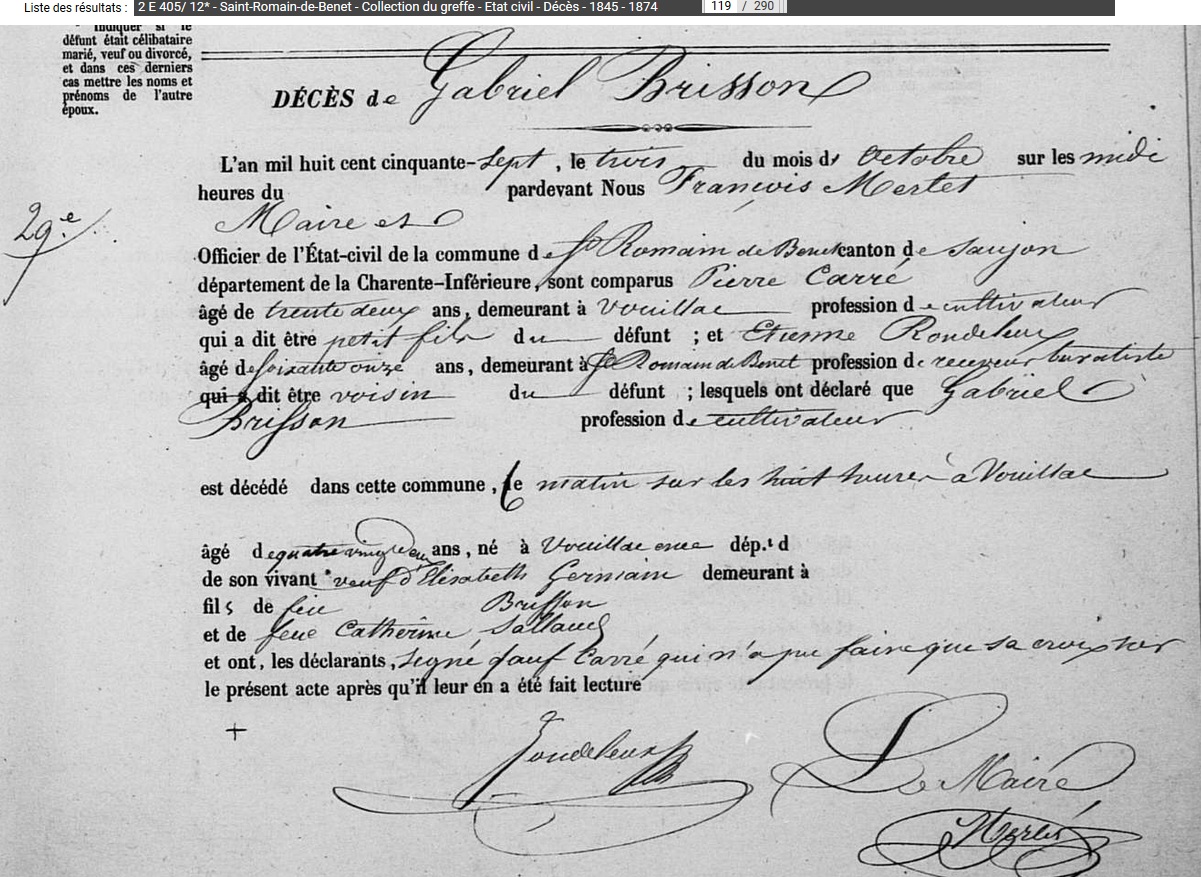 Liste des résultats : 2 E 405/ 12* - Saint-Romain-de-Benet - Collection du greffe - Etat civil - Décès - 1845 - 1874 119 / 290
Indiquer si le
défunt était célibataire
marié, veuf ou divorcé,
et dans ces derniers
cas mettre les noms et
prénoms de l'autre
époux.
DÉCÈS de Gabriel Brisson
L'an mil huit cent cinquante-sept, le trois du mois d' Octobre sur les midi
heures du pardevant Nous François Merlet
Maire et
29.e
Officier de l'État-civil de la commune de St Romain de Benet canton de Saujon
département de la Charente-Inférieure, sont comparus Pierre Carré
âgé de trente deux ans, demeurant à Vouillac profession de cultivateur
qui a dit être petit fils du défunt ; et Etienne Rondeleux
âgé de soixante onze ans, demeurant à St Romain de Benet profession de receveur buraliste
qui a dit être voisin du défunt ; lesquels ont déclaré que Gabriel
Brisson profession de cultivateur
est décédé dans cette commune, le matin sur les huit heures à Vouillac
âgé de quatre vingt ans, né à Vouillac dép.t d
de son vivant veuf d'Elisabeth Germain demeurant à
fils de feu Brisson
et de feue Catherine
et ont, les déclarants, signé sauf Carré qui n'a pu faire que sa croix sur
le présent acte après qu'il leur en a été fait lecture
+
Rondeleux
Le Maire
Merlet